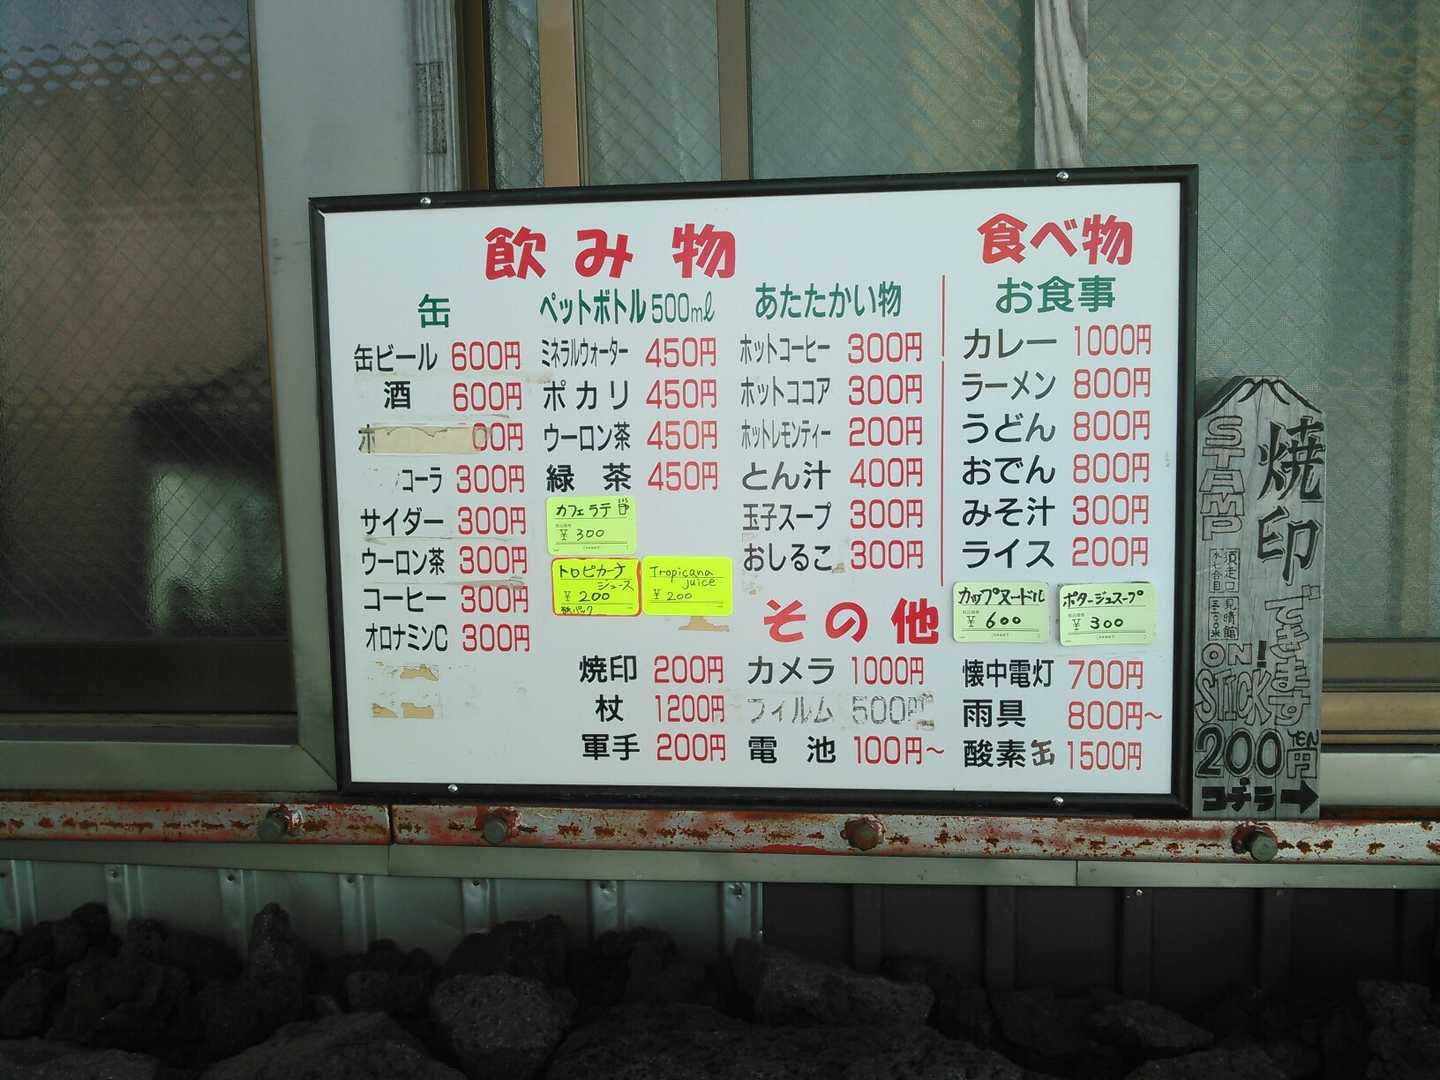 飲み物
缶
缶ビール 600円
酒 600円
00円
コーラ 300円
サイダー 300円
ウーロン茶 300円
コーヒー 300円
オロナミンC 300円
ペットボトル500mℓ
ミネラルウォーター 450円
ポカリ 450円
ウーロン茶 450円
緑茶 450円
カフェラテ
¥300
トロピカーナ
ジュース
¥200
紙パック
Tropicana
juice
¥200
あたたかい物
ホットコーヒー 300円
ホットココア 300円
ホットレモンティー 200円
とん汁 400円
玉子スープ 300円
おしるこ 300円
食べ物
お食事
カレー 1000円
ラーメン 800円
うどん 800円
おでん 800円
みそ汁 300円
ライス 200円
カップヌードル
¥600
ポタージュスープ
¥300
その他
焼印 200円
杖 1200円
軍手 200円
カメラ 1000円
フィルム 500円
電池 100円~
懐中電灯 700円
雨具 800円~
酸素缶 1500円
焼印
できます
STAMP
須走口 見晴館
ON!
STICK
200円
YEN
コチラ→